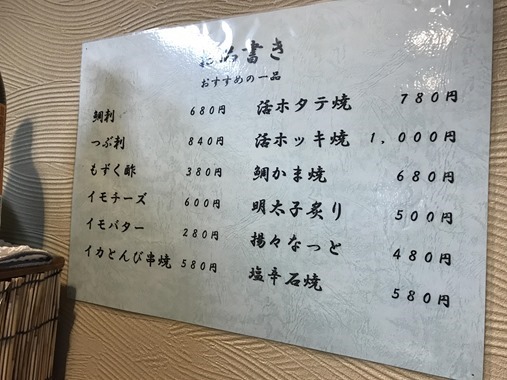 お品書き
おすすめの一品
鯛刺 680円
つぶ刺 840円
もずく酢 380円
イモチーズ 600円
イモバター 280円
イカとんび串焼 580円
活ホタテ焼 780円
活ホッキ焼 1,000円
鯛かま焼 680円
明太子炙り 500円
揚々なっと 480円
塩辛石焼 580円